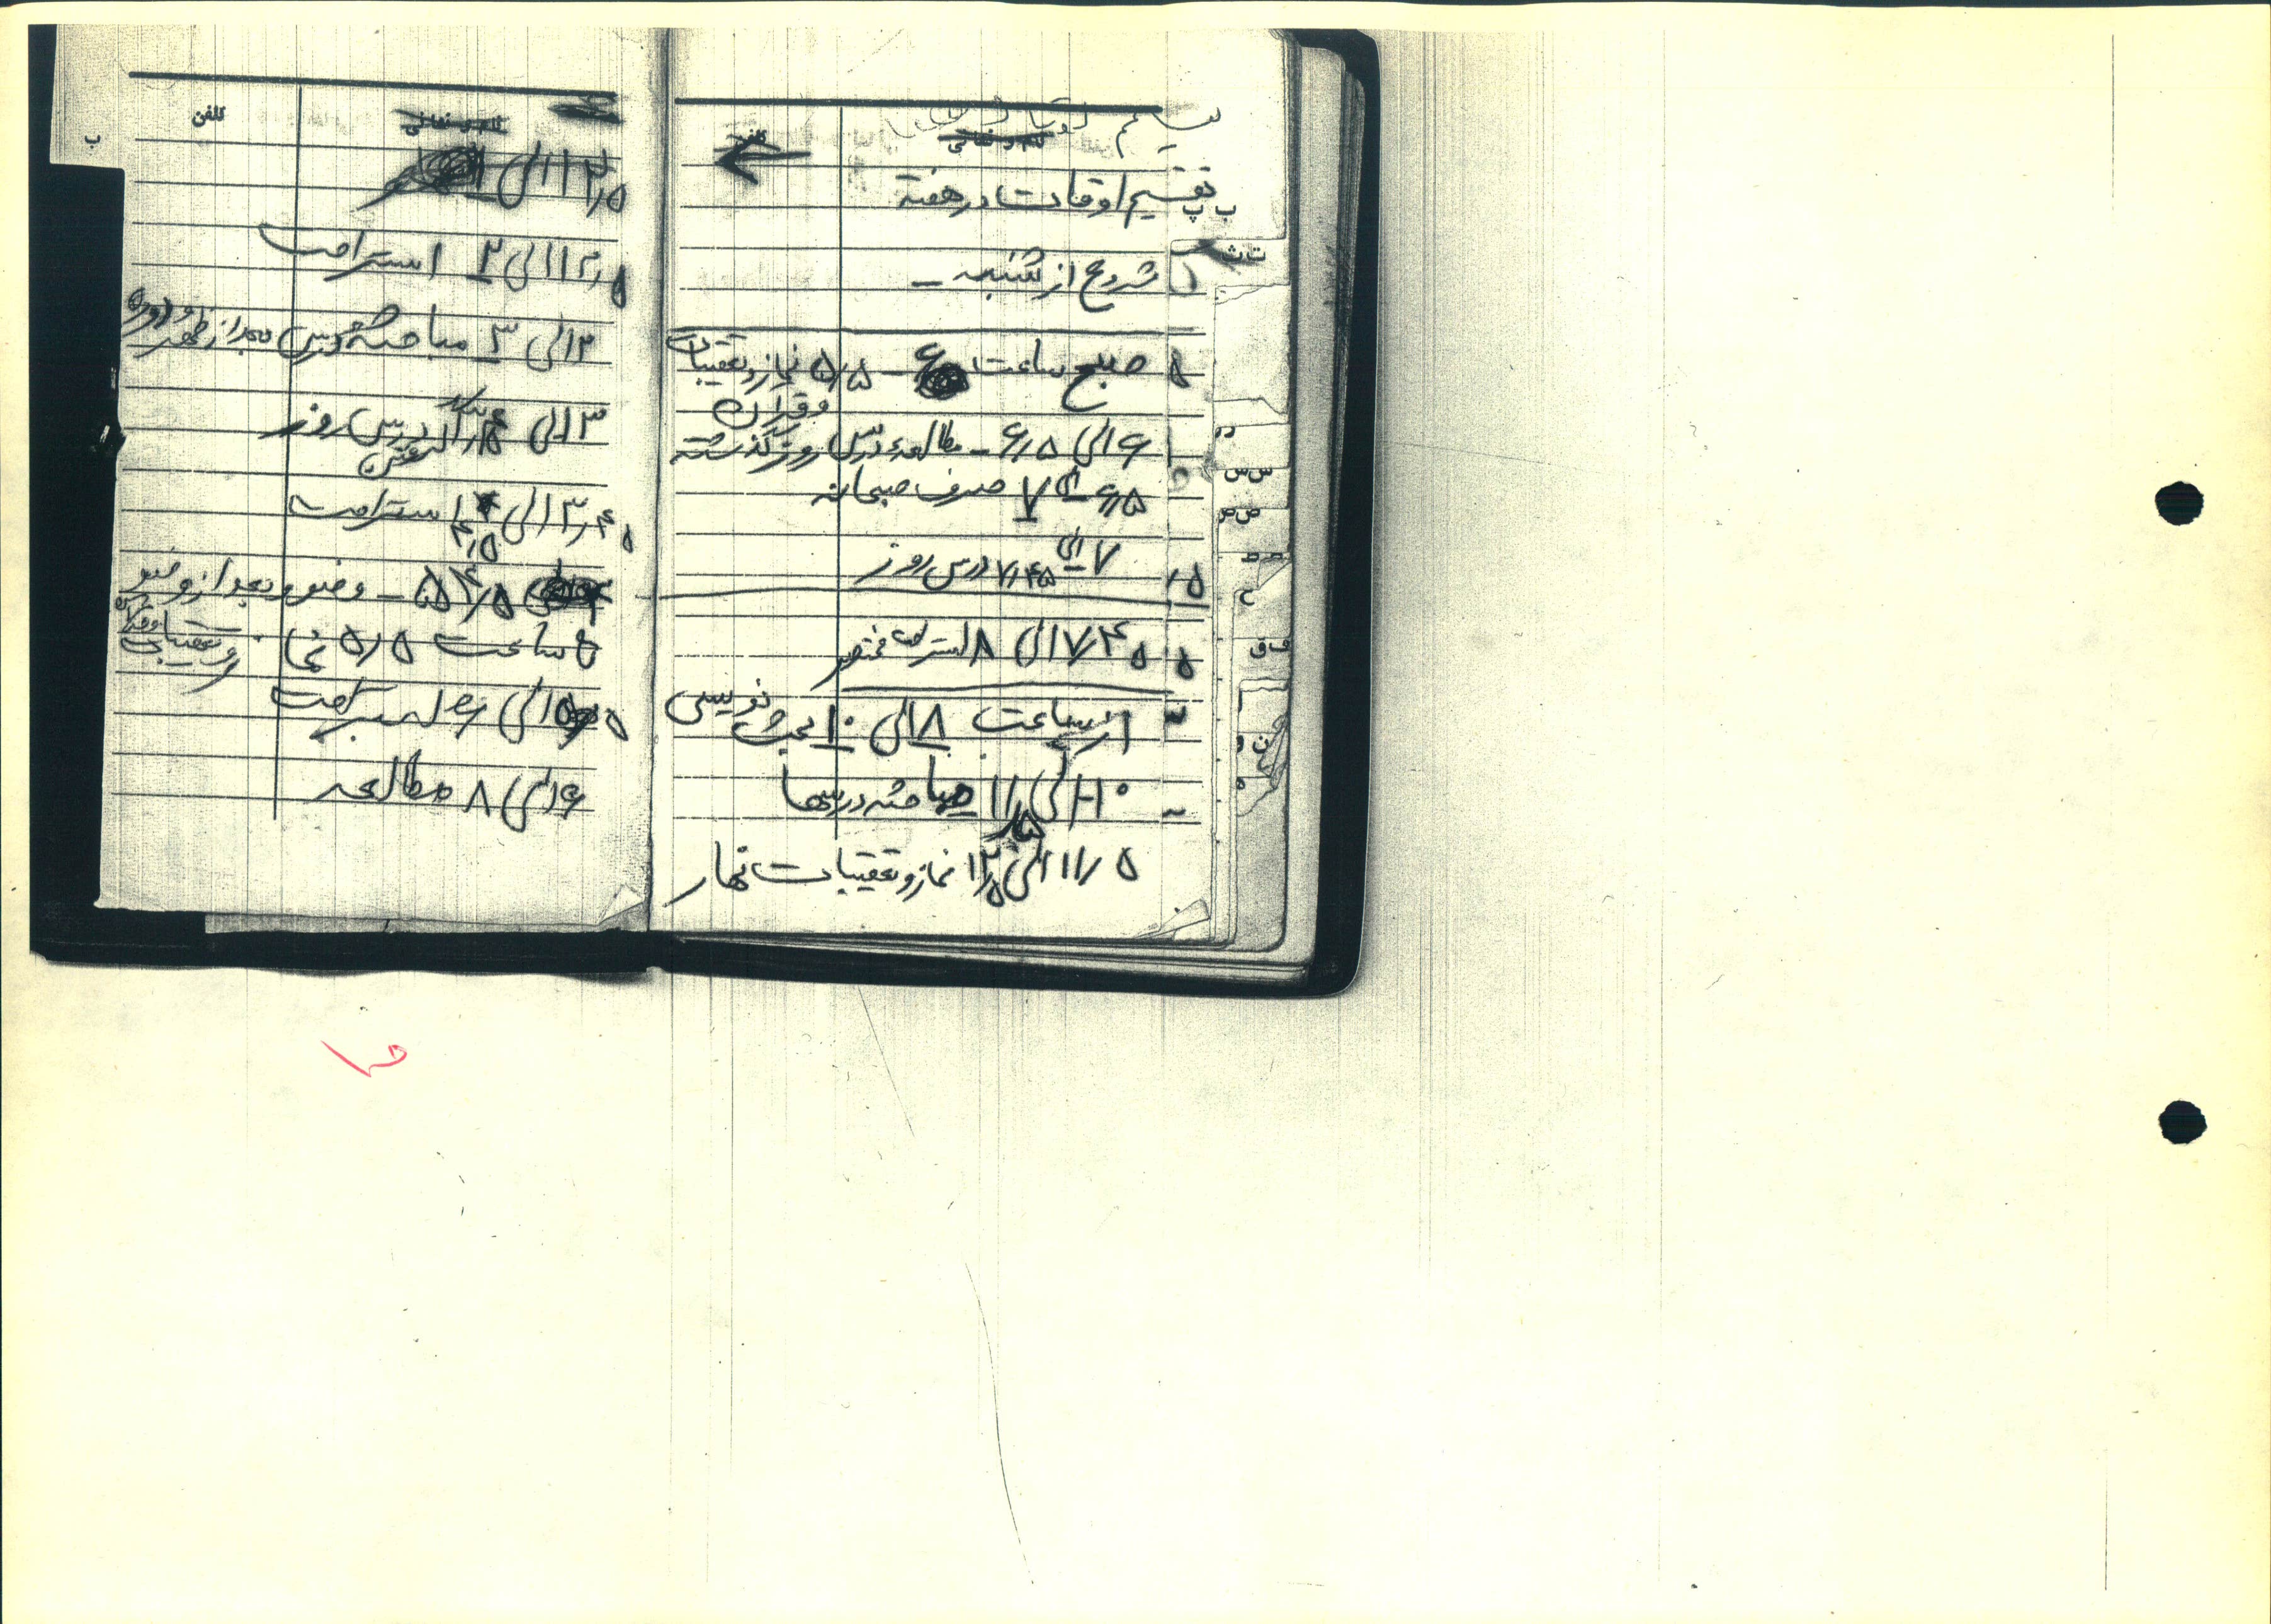 تقسیم اوقات در هفته
شروع از شنبه –
صبح ساعت ۵/۵ – ۶ نماز و تعقیبات
و قرآن
۶ الی ۶/۵ – مطالعه درس روز گذشته
۶/۵ الی ۷ صرف صبحانه
۷ الی ۷/۴۵ درس روز
۷/۴۵ الی ۸ استراحت مختصر
از ساعت ۸ الی ۱۰ نویسی
۱۰ الی ۱۱/۵ مباحثه درسها
۱۱/۵ الی ۱۲/۵ نماز و تعقیبات نهار
تلفن
ب
۱۲/۵ الی
۱۲/۵ الی ۲ استراحت
۲ الی ۳ مباحثه درس بعد از ظهر و دوره
۳ الی درس روز
۳/۴۵ الی ۴/۵ استراحت
۴/۵ ۵ – وضو و بعد از وضو
ساعت ۵/۵ نماز و تعقیبات و قرآن
الی ۶ استراحت
۶ الی ۸ مطالعه